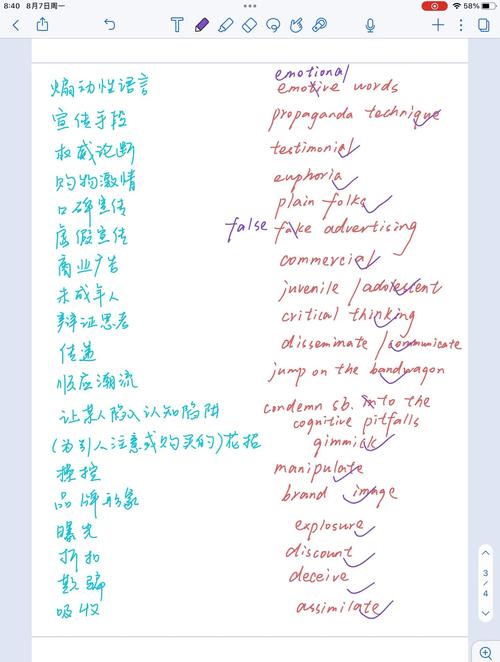 8:40 8月7日周一
58%
emotional
煽动性语言 emotive words
宣传手段 propaganda technique
权威论断 testimonial
购物激情 euphoria
口碑宣传 plain folks
虚假宣传 false fake advertising
商业广告 commercial
未成年人 juvenile / adolescent
辩证思考 critical thinking
传递 disseminate / communicate
顺应潮流 jump on the bandwagon
让某人陷入认知陷阱 condemn sb. into the
cognitive pitfalls
(为引人注意或购买的)花招 gimmick
操控 manipulate
品牌形象 brand image
曝光 explosure
折扣 discount
欺骗 deceive
吸收 assimilate
3
/
4